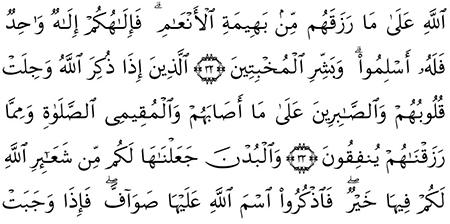 ٱللَّهِ عَلَىٰ مَا رَزَقَهُم مِّنۢ بَهِيمَةِ ٱلْأَنْعَٰمِ ۗ فَإِلَٰهُكُمْ إِلَٰهٌ وَٰحِدٌ
فَلَهُۥٓ أَسْلِمُوا۟ ۗ وَبَشِّرِ ٱلْمُخْبِتِينَ ٣٢ ٱلَّذِينَ إِذَا ذُكِرَ ٱللَّهُ وَجِلَتْ
قُلُوبُهُمْ وَٱلصَّٰبِرِينَ عَلَىٰ مَآ أَصَابَهُمْ وَٱلْمُقِيمِى ٱلصَّلَوٰةِ وَمِمَّا
رَزَقْنَٰهُمْ يُنفِقُونَ ٣٣ وَٱلْبُدْنَ جَعَلْنَٰهَا لَكُم مِّن شَعَٰٓئِرِ ٱللَّهِ
لَكُمْ فِيهَا خَيْرٌ ۖ فَٱذْكُرُوا۟ ٱسْمَ ٱللَّهِ عَلَيْهَا صَوَآفَّ ۖ فَإِذَا وَجَبَتْ